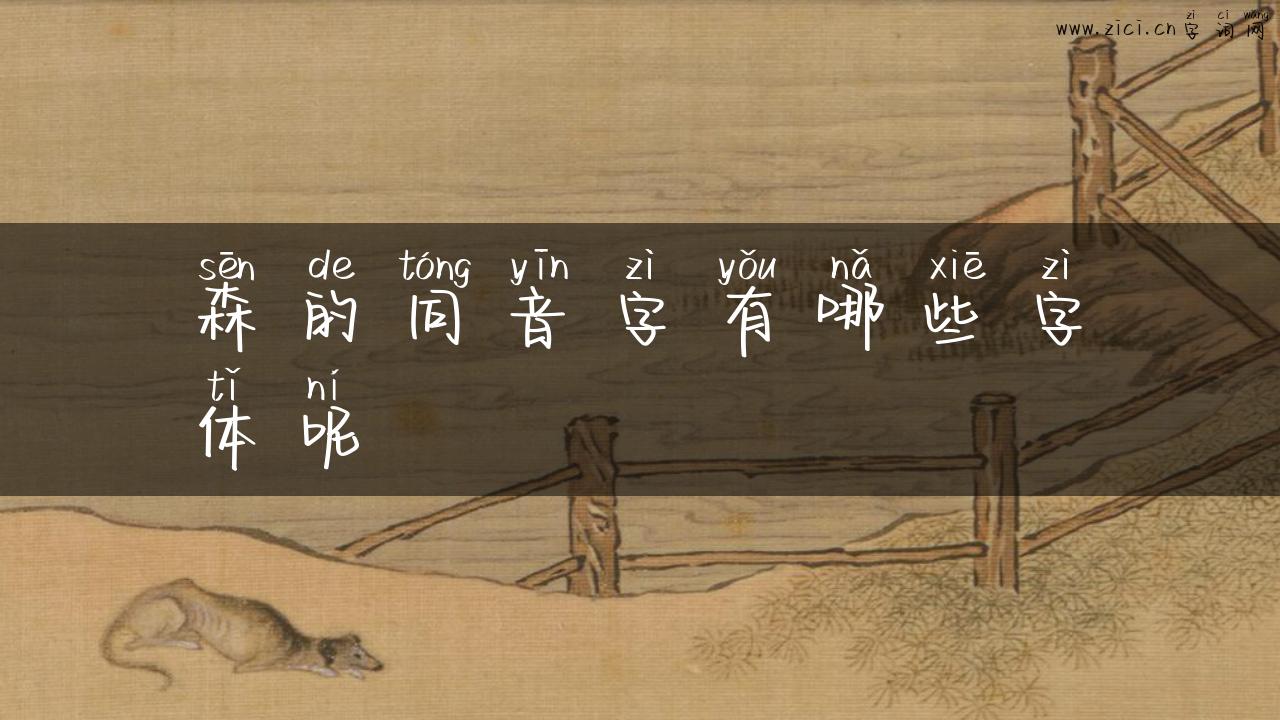 zì cí wǎng
www.zici.cn 字词网
sēn de tóng yīn zì yǒu nǎ xiē zì
森的同音字有哪些字
tǐ ní
体呢